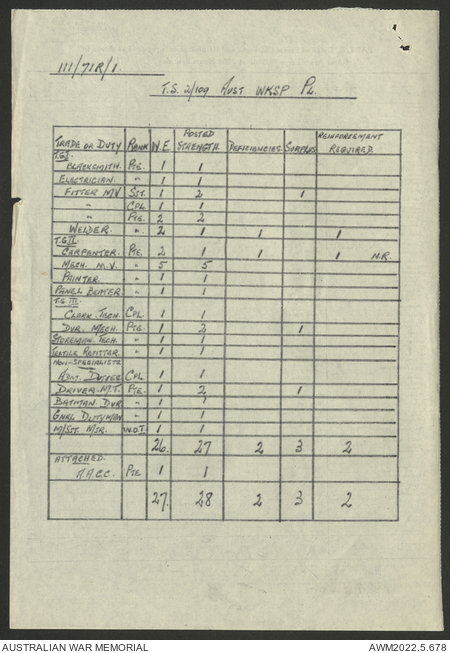 111/71R/1.
T.S. 2/109 AUST WKSP PL.
TRADE OR DUTY RANK W.E. POSTED STRENGTH DEFICIENCIES SURPLUS REINFORCEMENT REQUIRED
T.G.I.
BLACKSMITH. PTE. 1 1
ELECTRICIAN. " 1 1
FITTER M/V SJT. 1 2 1
" CPL 1 1
" PTE 2 2
WELDER. " 2 1 1 1
T.G.II.
CARPENTER. PTE 2 1 1 1 N.R.
MECH. M.V. " 5 5
PAINTER. " 1 1
PANEL BEATER. " 1 1
T.G. III.
CLERK. TECH. CPL. 1 1
DVR. MECH. PTE. 1 2 1
STOREMAN. TECH. " 1 1
TEXTILE REFITTER " 1 1
NON-SPECIALISTS
ADM. DUTIES CPL 1 1
DRIVER. M.T. PTE. 1 2 1
BATMAN. DVR. " 1 1
GNRL DUTYMAN " 1 1
M/SJT. MJR. W.O.I. 1 1
26. 27 2 3 2
ATTACHED.
A.A.C.C. PTE 1 1
27. 28 2 3 2
AUSTRALIAN WAR MEMORIAL AWM2022.5.678